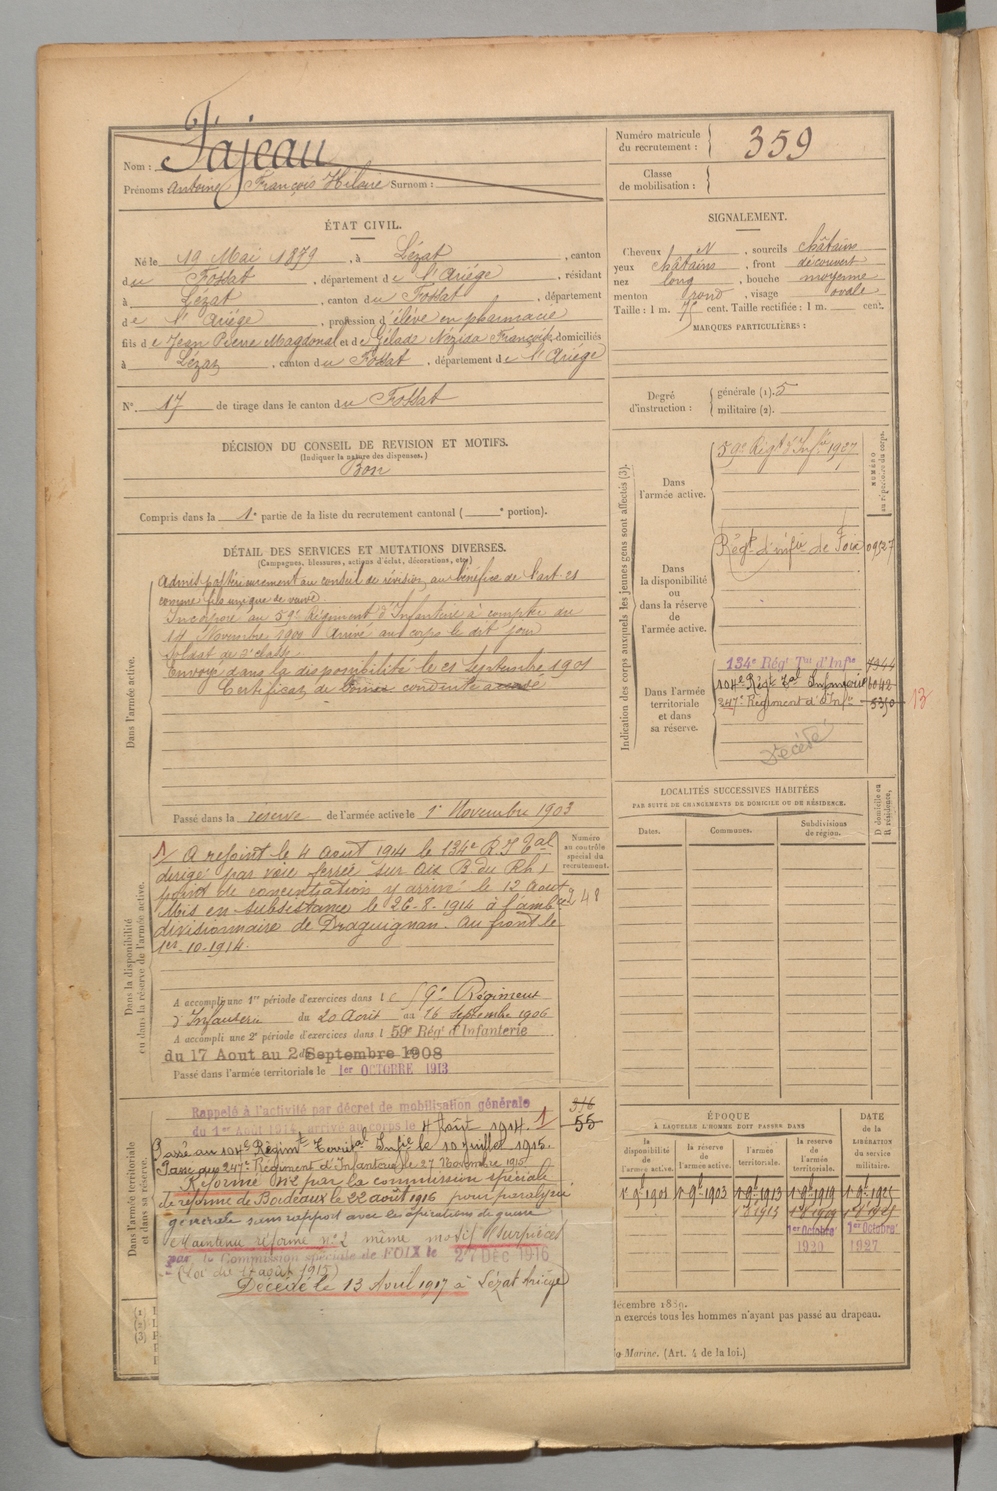 Nom : Fajeau
Prénoms Antoine François Hilaire Surnom :
Numéro matricule du recrutement : 359
Classe de mobilisation :
ÉTAT CIVIL.
Né le 19 Mai 1879, à Lézat, canton
du Fossat, département de l'Ariége, résidant
à Lézat, canton du Fossat, département
de l'Ariége, profession d'élève en pharmacie
fils de Jean Pierre Magdonal et de Gélade Nézida Françoise domiciliés
à Lézat, canton du Fossat, département de l'Ariége
N° 17 de tirage dans le canton du Fossat
SIGNALEMENT.
Cheveux N, sourcils châtains
yeux châtains, front découvert
nez long, bouche moyenne
menton rond, visage ovale
Taille : 1 m. 75 cent. Taille rectifiée : 1 m. cent.
MARQUES PARTICULIÈRES :
Degré d'instruction : générale (1). 5
militaire (2).
DÉCISION DU CONSEIL DE REVISION ET MOTIFS.
(Indiquer la nature des dispenses.)
Bon
Compris dans la 1e partie de la liste du recrutement cantonal ( e portion).
DÉTAIL DES SERVICES ET MUTATIONS DIVERSES.
(Campagnes, blessures, actions d'éclat, décorations, etc.)
Dans l'armée active.
Admis postérieurement au conseil de révision au bénéfice de l'art 21
comme fils unique de veuve.
Incorporé au 59e Régiment d'Infanterie à compter du
14 Novembre 1900 Arrivé au corps le dit jour
Soldat de 2e classe.
Envoyé dans la disponibilité le 21 Septembre 1901
Certificat de bonne conduite accordé
Passé dans la réserve de l'armée active le 1er Novembre 1903
Dans la disponibilité ou dans la réserve de l'armée active.
Numéro au contrôle spécial du recrutement.
248
1/ A rejoint le 4 aout 1914 le 134e R.I. Tal
dirigé par voie ferrée sur Aix B du Rh
point de concentration y arrivé le 12 Aout
Mis en subsistance le 26-8-1914 à l'amb ce
divisionnaire de Draguignan. Au front le
1er-10-1914.
A accompli une 1re période d'exercices dans le 59e Régiment
d'Infanterie du 20 Aout au 16 Septembre 1906
A accompli une 2e période d'exercices dans le 59e Régt d'Infanterie
du 17 Aout au 2 Septembre 1908
Passé dans l'armée territoriale le 1er OCTOBRE 1913
Dans l'armée territoriale et dans sa réserve.
Rappelé à l'activité par décret de mobilisation générale
du 1er Août 1914, arrivé au corps le 4 Août 1914. 1
316
55
Passé au 104e Régimt Territal Infie le 10 juillet 1915.
Passé au 247e Régiment d'Infanterie le 27 Novembre 1915
Réformé N°2 par la commission spéciale
de réforme de Bordeaux le 22 août 1916 pour paralysie
générale sans rapport avec les opérations de guerre
Maintenu réformé n°2 même motif sur pièces
par la Commission spéciale de FOIX le 27 DEC 1916
(Loi du 17 août 1915)
Décédé le 13 Avril 1917 à Lézat Ariége
Indication des corps auxquels les jeunes gens sont affectés (3).
NUMÉRO au répertoire du corps.
Dans l'armée active.
59e Régt d'Infie 1907
Dans la disponibilité ou dans la réserve de l'armée active.
Régt d'infie de Foix 09527
Dans l'armée territoriale et dans sa réserve.
134e Régt Tal d'Infie 7944
104e Régt Tal Infanterie 6042
247e Régiment d'Infie 5350
13
Décédé
LOCALITÉS SUCCESSIVES HABITÉES
PAR SUITE DE CHANGEMENTS DE DOMICILE OU DE RÉSIDENCE.
Dates. Communes. Subdivisions de région. D domicile ou R résidence.
ÉPOQUE
À LAQUELLE L'HOMME DOIT PASSER DANS
DATE de la LIBÉRATION du service militaire.
la disponibilité de l'armée active.
la réserve de l'armée active.
l'armée territoriale.
la réserve de l'armée territoriale.
1er 9bre 1901 1er 9bre 1903 1er 9bre 1913 1er 9bre 1919 1er 9bre 1925
1er Octobre 1920
1er Octobre 1927
décembre 1889.
n exercés tous les hommes n'ayant pas passé au drapeau.
la Marine. (Art. 4 de la loi.)